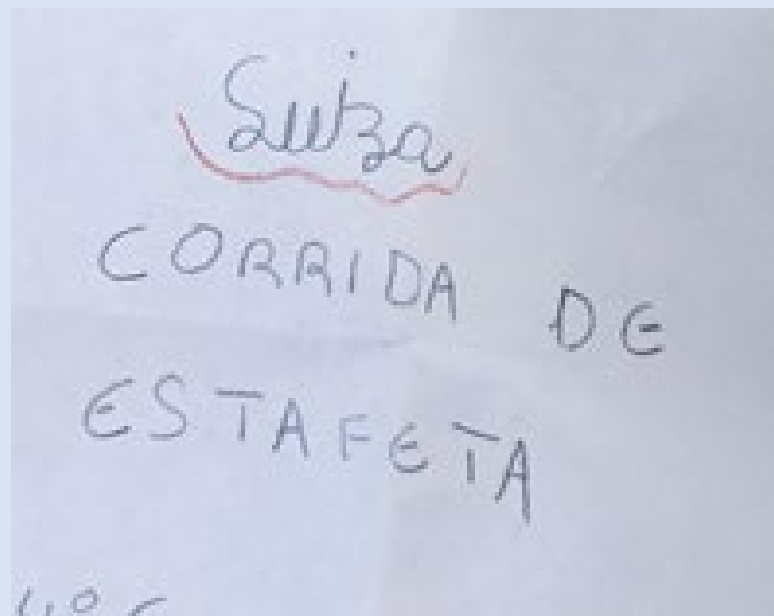 Suiza
CORRIDA DE
ESTAFETA
4º C